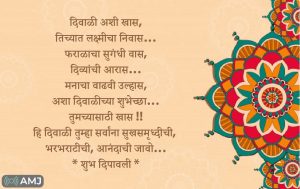 दिवाळी अशी खास,
तिच्यात लक्ष्मीचा निवास...
फराळाचा सुगंधी वास,
दिव्यांची आरास...
मनाचा वाढवी उल्हास,
अशा दिवाळीच्या शुभेच्छा...
तुमच्यासाठी खास !!
हि दिवाळी तुम्हा सर्वांना सुखसमृध्दीची,
भरभराटीची, आनंदाची जावो...
* शुभ दिपावली *
AMJ